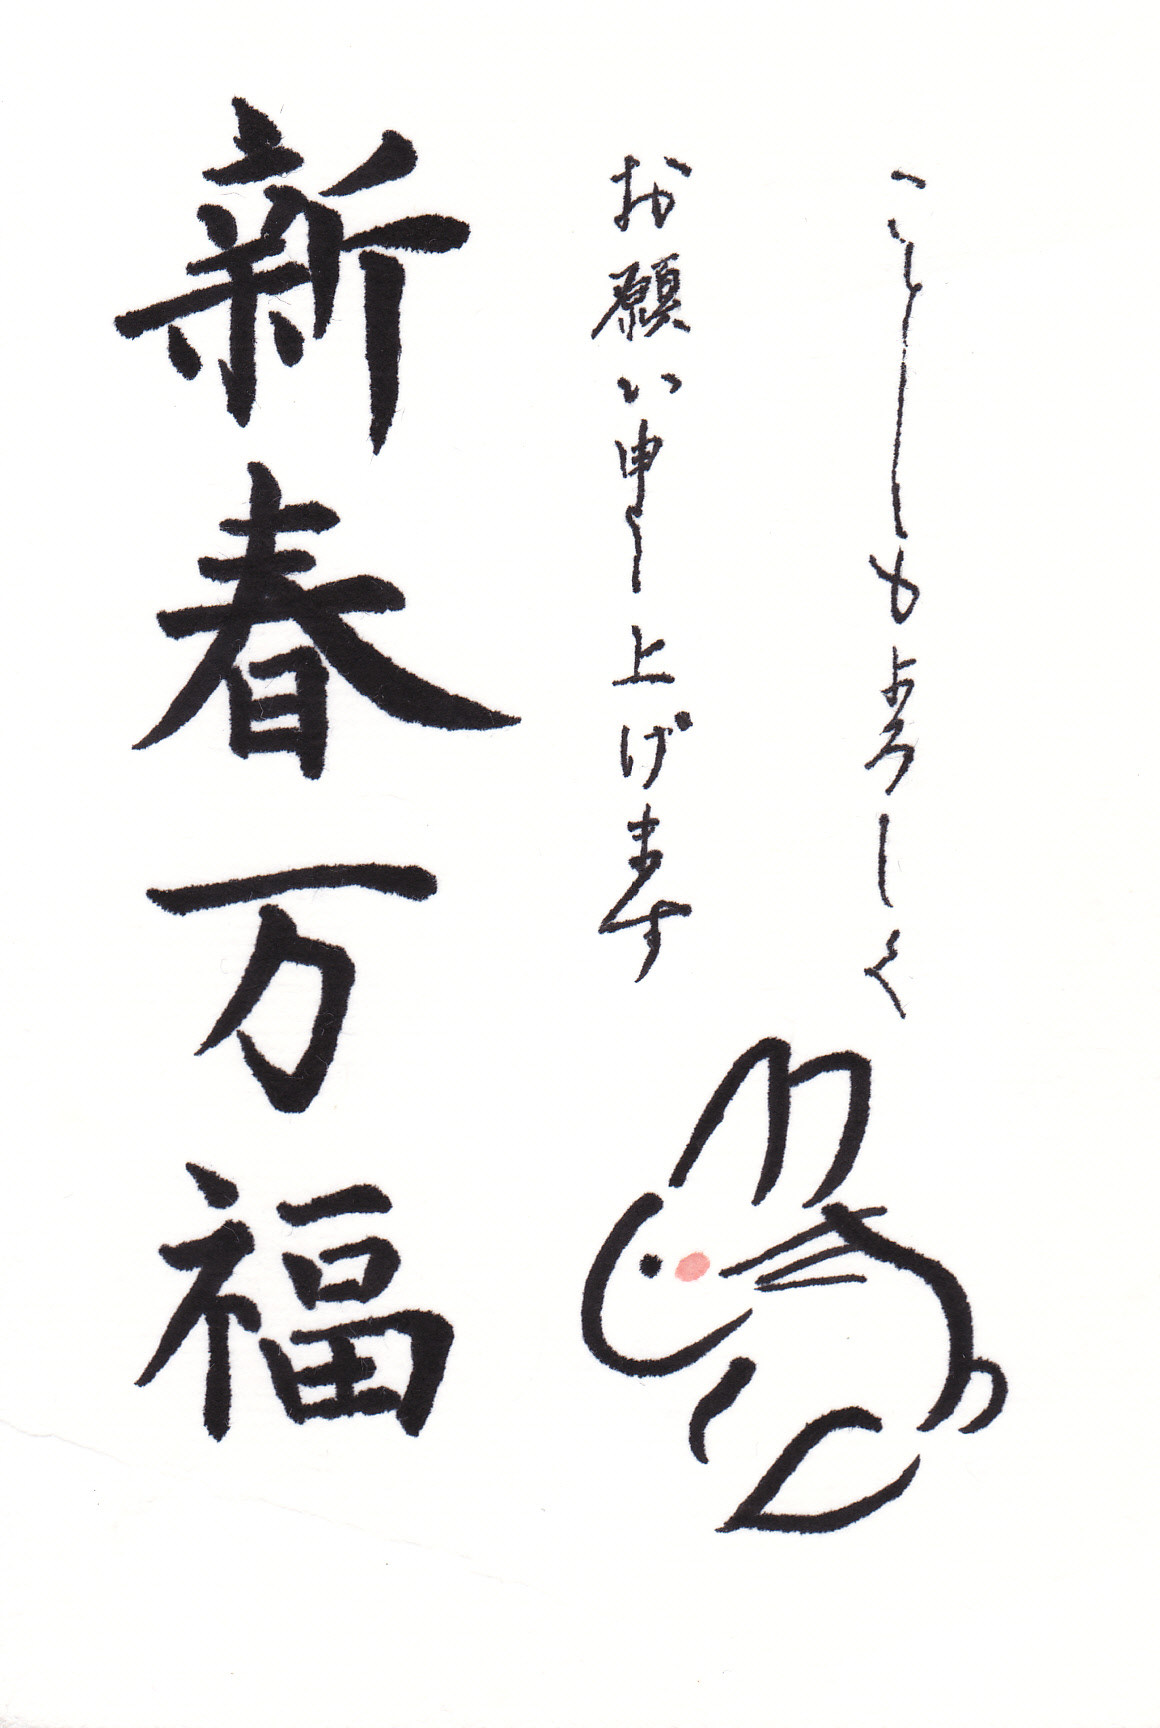 ことしもよろしく
お願い申し上げます
新春万福